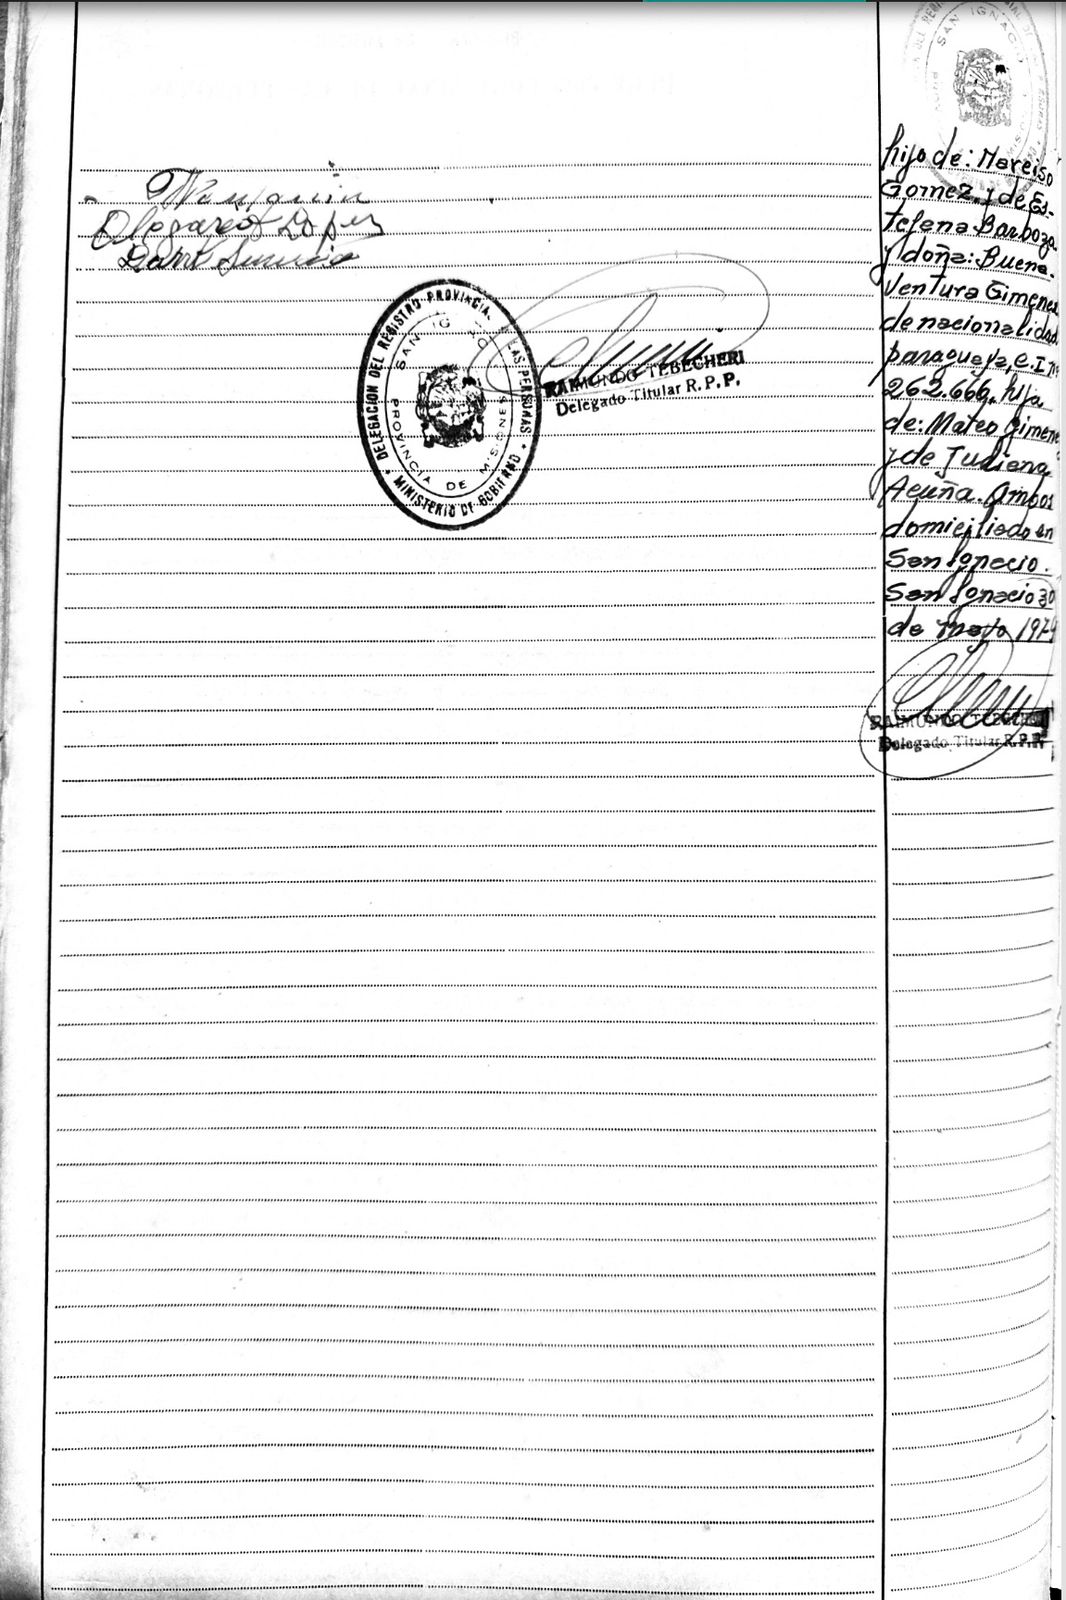 Olegario López
DELEGACION DEL REGISTRO PROVINCIAL LAS PERSONAS
SAN IGNACIO
PROVINCIA DE MISIONES
* MINISTERIO DE GOBIERNO *
RAIMUNDO TEBECHERI
Delegado Titular R. P. P.
SAN IGNACIO
hijo de: Narciso
Gomez y de Es-
telena Barboza
y doña: Buena-
Ventura Gimenez
de nacionalidad
paraguaya, C.I. nº
262.666, hija
de: Mateo Gimenez
y de Tudiena
Acuña. Ambos
domiciliado en
San Ignacio.
San Ignacio 30
de mayo 1974
RAIMUNDO TEBECHERI
Delegado Titular R.P.P.